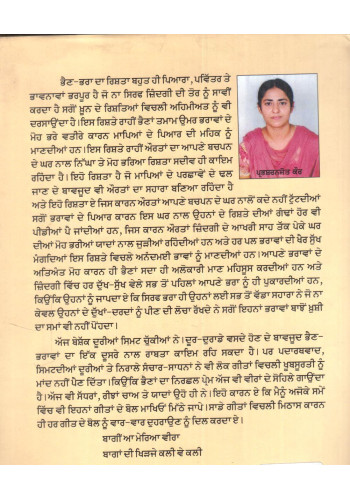 ਭੈਣ-ਭਰਾ ਦਾ ਰਿਸ਼ਤਾ ਬਹੁਤ ਹੀ ਪਿਆਰਾ, ਪਵਿੱਤਰ ਤੇ
ਭਾਵਨਾਵਾਂ ਭਰਪੂਰ ਹੈ ਜੋ ਨਾ ਸਿਰਫ ਜ਼ਿੰਦਗੀ ਦੀ ਤੋਰ ਨੂੰ ਸਾਵੀਂ
ਕਰਦਾ ਹੈ ਸਗੋਂ ਖ਼ੂਨ ਦੇ ਰਿਸ਼ਤਿਆਂ ਵਿਚਲੀ ਅਹਿਮੀਅਤ ਨੂੰ ਵੀ
ਦਰਸਾਉਂਦਾ ਹੈ। ਇਸ ਰਿਸ਼ਤੇ ਰਾਹੀਂ ਭੈਣਾਂ ਤਮਾਮ ਉਮਰ ਭਰਾਵਾਂ ਦੇ
ਮੋਹ ਭਰੇ ਵਤੀਰੇ ਕਾਰਨ ਮਾਪਿਆਂ ਦੇ ਪਿਆਰ ਦੀ ਮਹਿਕ ਨੂੰ
ਮਾਣਦੀਆਂ ਹਨ। ਇਸ ਰਿਸ਼ਤੇ ਰਾਹੀਂ ਔਰਤਾਂ ਦਾ ਆਪਣੇ ਬਚਪਨ
ਦੇ ਘਰ ਨਾਲ ਨਿੱਘਾ ਤੇ ਮੋਹ ਭਰਿਆ ਰਿਸ਼ਤਾ ਸਦੀਵ ਹੀ ਕਾਇਮ
ਰਹਿੰਦਾ ਹੈ। ਇਹ ਰਿਸ਼ਤਾ ਹੈ ਜੋ ਮਾਪਿਆਂ ਦੇ ਪਰਛਾਵੇਂ ਦੇ ਢਲ
ਜਾਣ ਦੇ ਬਾਵਜੂਦ ਵੀ ਔਰਤਾਂ ਦਾ ਸਹਾਰਾ ਬਣਿਆ ਰਹਿੰਦਾ ਹੈ
ਪ੍ਰਭਸ਼ਰਨਜੀਤ ਕੌਰ
ਅਤੇ ਇਹ ਰਿਸ਼ਤਾ ਏ ਜਿਸ ਕਾਰਨ ਔਰਤਾਂ ਆਪਣੇ ਬਚਪਨ ਦੇ ਘਰ ਨਾਲੋਂ ਕਦੇ ਨਹੀਂ ਟੁੱਟਦੀਆਂ
ਸਗੋਂ ਭਰਾਵਾਂ ਦੇ ਪਿਆਰ ਕਾਰਨ ਇਸ ਘਰ ਨਾਲ ਉਹਨਾਂ ਦੇ ਰਿਸ਼ਤੇ ਦੀਆਂ ਗੰਢਾਂ ਹੋਰ ਵੀ
ਪੀਡੀਆਂ ਪੈ ਜਾਂਦੀਆਂ ਹਨ, ਜਿਸ ਕਾਰਨ ਔਰਤਾਂ ਜ਼ਿੰਦਗੀ ਦੇ ਆਖਰੀ ਸਾਹ ਤੱਕ ਪੇਕੇ ਘਰ
ਦੀਆਂ ਮੋਹ ਭਰੀਆਂ ਯਾਦਾਂ ਨਾਲ ਜੁੜੀਆਂ ਰਹਿੰਦੀਆਂ ਹਨ ਅਤੇ ਹਰ ਪਲ ਭਰਾਵਾਂ ਦੀ ਖੈਰ ਸੁੱਖ
ਮੰਗਦਿਆਂ ਇਸ ਰਿਸ਼ਤੇ ਵਿਚਲੇ ਅਨੰਦਮਈ ਭਾਵਾਂ ਨੂੰ ਮਾਣਦੀਆਂ ਹਨ। ਆਪਣੇ ਭਰਾਵਾਂ ਦੇ
ਅਤਿਅੰਤ ਮੋਹ ਕਾਰਨ ਹੀ ਭੈਣਾਂ ਸਦਾ ਹੀ ਅਲੋਕਾਰੀ ਮਾਣ ਮਹਿਸੂਸ ਕਰਦੀਆਂ ਹਨ ਅਤੇ
ਜ਼ਿੰਦਗੀ ਵਿੱਚ ਹਰ ਦੁੱਖ-ਸੁੱਖ ਵੇਲੇ ਸਭ ਤੋਂ ਪਹਿਲਾਂ ਆਪਣੇ ਭਰਾ ਨੂੰ ਹੀ ਪੁਕਾਰਦੀਆਂ ਹਨ,
ਕਿਉਂਕਿ ਉਹਨਾਂ ਨੂੰ ਜਾਪਦਾ ਏ ਕਿ ਸਿਰਫ ਭਰਾ ਹੀ ਉਹਨਾਂ ਲਈ ਸਭ ਤੋਂ ਵੱਡਾ ਸਹਾਰਾ ਨੇ ਜੋ ਨਾ
ਕੇਵਲ ਉਹਨਾਂ ਦੇ ਦੁੱਖਾਂ-ਦਰਦਾਂ ਨੂੰ ਪੀਣ ਦੀ ਲੋਚਾ ਰੱਖਦੇ ਨੇ ਸਗੋਂ ਇਹਨਾਂ ਭਰਾਵਾਂ ਬਾਝੋਂ ਖ਼ੁਸ਼ੀ
ਦਾ ਸਮਾਂ ਵੀ ਨਹੀਂ ਪੋਂਹਦਾ।
ਅੱਜ ਬੇਸ਼ੱਕ ਦੂਰੀਆਂ ਸਿਮਟ ਚੁੱਕੀਆਂ ਨੇ। ਦੂਰ-ਦੁਰਾਡੇ ਵਸਦੇ ਹੋਣ ਦੇ ਬਾਵਜੂਦ ਭੈਣ-
ਭਰਾਵਾਂ ਦਾ ਇੱਕ ਦੂਸਰੇ ਨਾਲ ਰਾਬਤਾ ਕਾਇਮ ਰਹਿ ਸਕਦਾ ਹੈ। ਪਰ ਪਦਾਰਥਵਾਦ,
ਸਿਮਟਦੀਆਂ ਦੂਰੀਆਂ ਤੇ ਨਿਰਾਲੇ ਸੰਚਾਰ-ਸਾਧਨਾਂ ਨੇ ਵੀ ਲੋਕ ਗੀਤਾਂ ਵਿਚਲੀ ਖੂਬਸੂਰਤੀ ਨੂੰ
ਮਾਂਦ ਨਹੀਂ ਪੈਣ ਦਿੱਤਾ। ਕਿਉਂਕਿ ਭੈਣਾਂ ਦਾ ਨਿਰਛਲ ਪ੍ਰੇਮ ਅੱਜ ਵੀ ਵੀਰਾਂ ਦੇ ਸੋਹਿਲੇ ਗਾਉਂਦਾ
ਹੈ। ਅੱਜ ਵੀ ਸੱਧਰਾਂ, ਰੀਝਾਂ ਚਾਅ ਤੇ ਯਾਦਾਂ ਉਹੋ ਹੀ ਨੇ। ਇਹੀ ਕਾਰਨ ਏ ਕਿ ਮੈਨੂੰ ਅਜੋਕੇ ਸਮੇਂ
ਵਿੱਚ ਵੀ ਇਹਨਾਂ ਗੀਤਾਂ ਦੇ ਬੋਲ ਮਾਖਿਓਂ ਮਿੱਠੇ ਜਾਪੇ। ਸਾਡੇ ਗੀਤਾਂ ਵਿਚਲੀ ਮਿਠਾਸ ਕਾਰਨ
ਹੀ ਹਰ ਗੀਤ ਦੇ ਬੋਲ ਨੂੰ ਵਾਰ-ਵਾਰ ਦੁਹਰਾਉਣ ਨੂੰ ਦਿਲ ਕਰਦਾ ਏ।
ਬਾਗੀਂ ਆ ਮੇਰਿਆ ਵੀਰਾ
ਬਾਗਾਂ ਦੀ ਖਿੜਜੇ ਕਲੀ ਵੇ ਕਲੀ